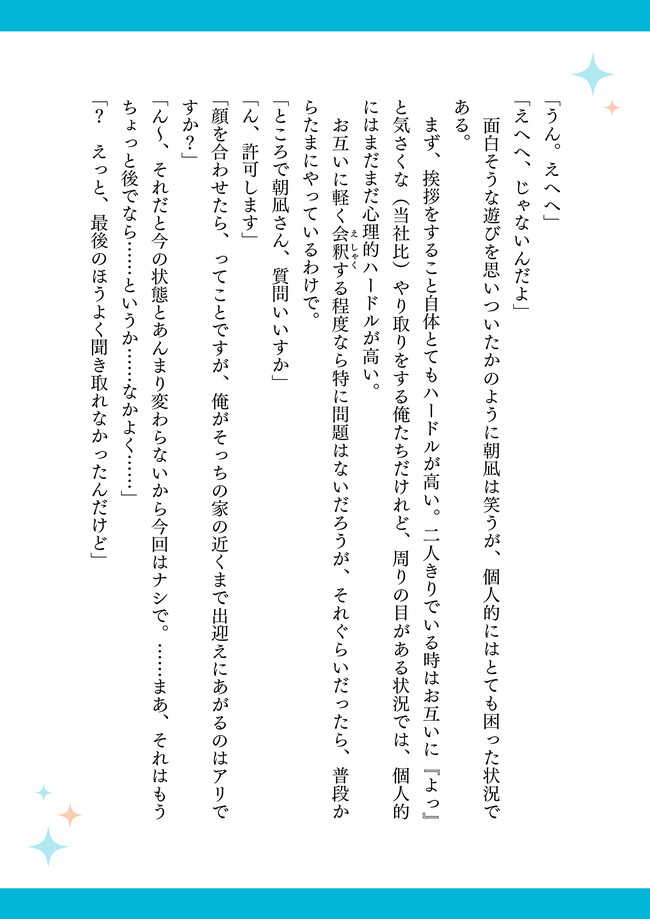 「うん。えへへ」
「えへへ、じゃないんだよ」
　面白そうな遊びを思いついたかのように朝凪は笑うが、個人的にはとても困った状況で
ある。
　まず、挨拶をすること自体とてもハードルが高い。二人きりでいる時はお互いに『よっ』
と気さくな（当社比）やり取りをする俺たちだけれど、周りの目がある状況では、個人的
にはまだまだ心理的ハードルが高い。
　お互いに軽く会釈えしゃくする程度なら特に問題はないだろうが、それぐらいだったら、普段か
らたまにやっているわけで。
「ところで朝凪さん、質問いいすか」
「ん、許可します」
「顔を合わせたら、ってことですが、俺がそっちの家の近くまで出迎えにあがるのはアリで
すか？」
「ん～、それだと今の状態とあんまり変わらないから今回はナシで。……まあ、それはもう
ちょっと後でなら……というか……なかよく……」
「？　えっと、最後のほうよく聞き取れなかったんだけど」